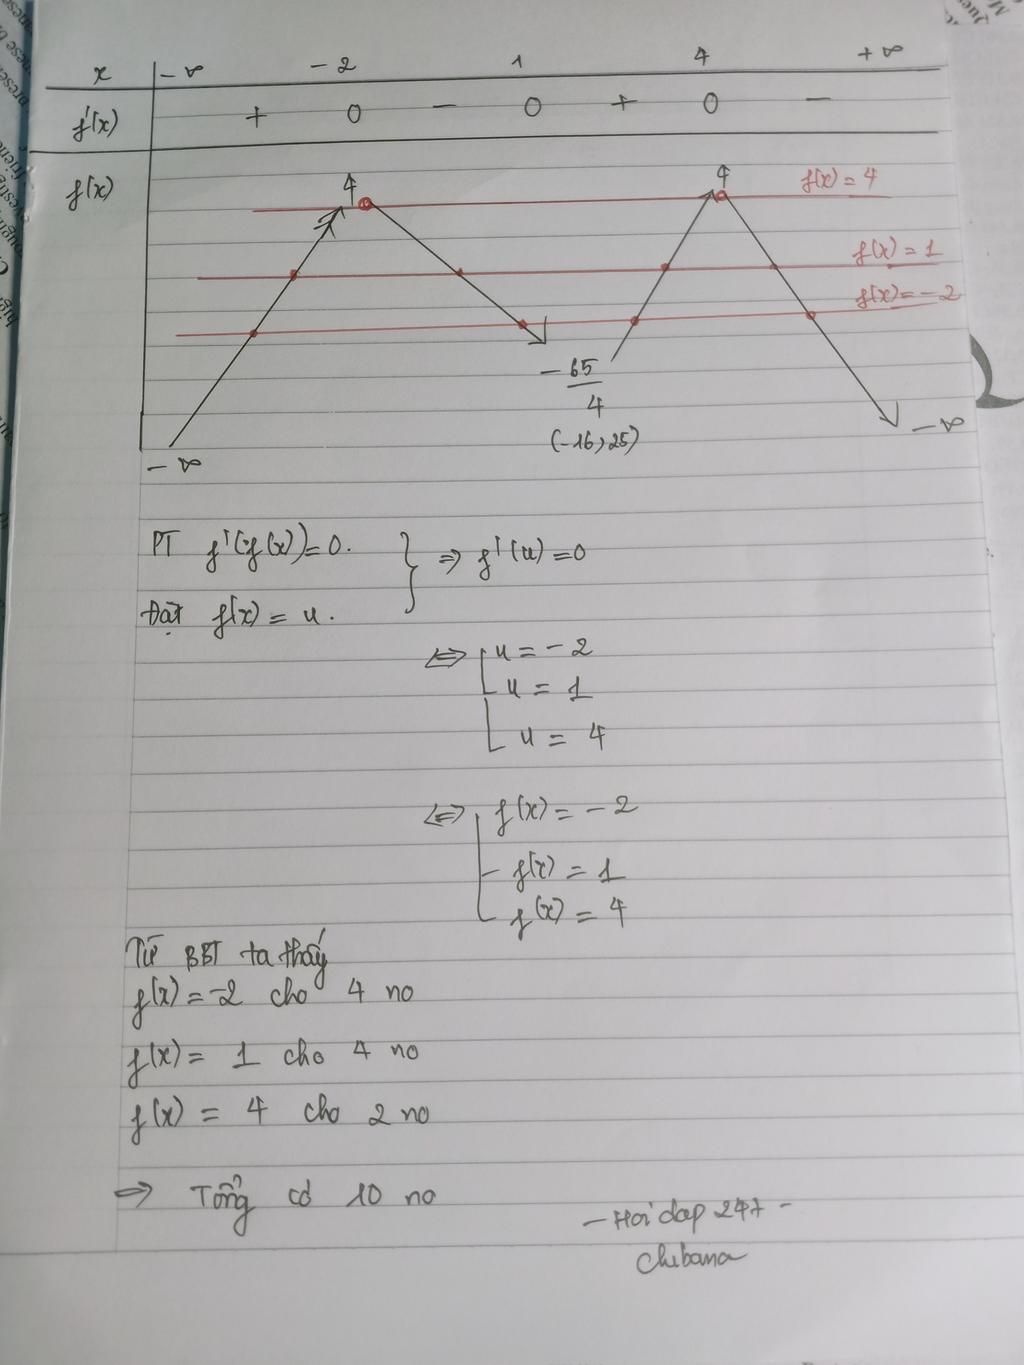 x -∞ -2 1 4 +∞
f'(x) + 0 - 0 + 0 -
f(x) 4 4 f(x) = 4
f(x) = 1
f(x) = -2
-65/4
(-16,25)
-∞ -∞
PT f'(f(x)) = 0. } ⇒ f'(u) = 0
Đặt f(x) = u.
⇔ [ u = -2
u = 1
u = 4
⇔ [ f(x) = -2
f(x) = 1
f(x) = 4
Từ BBT ta thấy
f(x) = -2 cho 4 no
f(x) = 1 cho 4 no
f(x) = 4 cho 2 no
⇒ Tổng có 10 no
- Hoi dap 247 -
Chibana